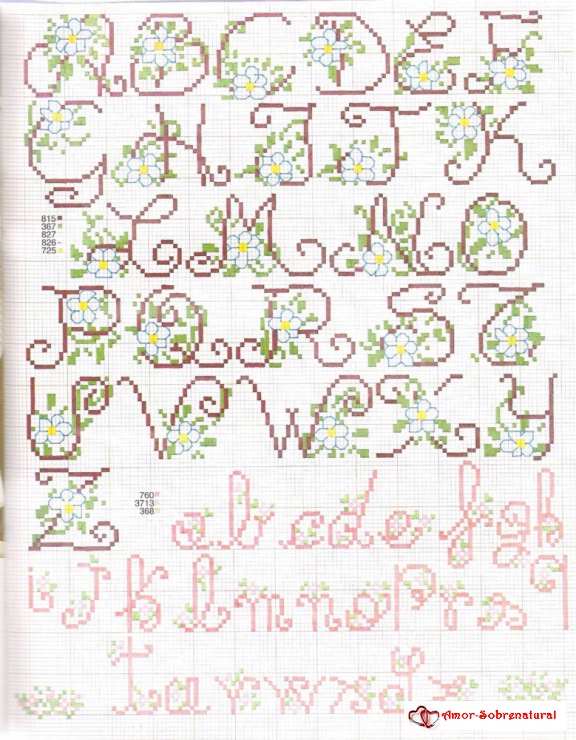 A B C D E F
G H I J K
815
367
827
826 -
725
L M N O
P Q R S T
U V W X Y
Z
760
3713
368
a b c d e f g h
i j k l m n o p r s q
t u v w x y z
Amor-Sobrenatural